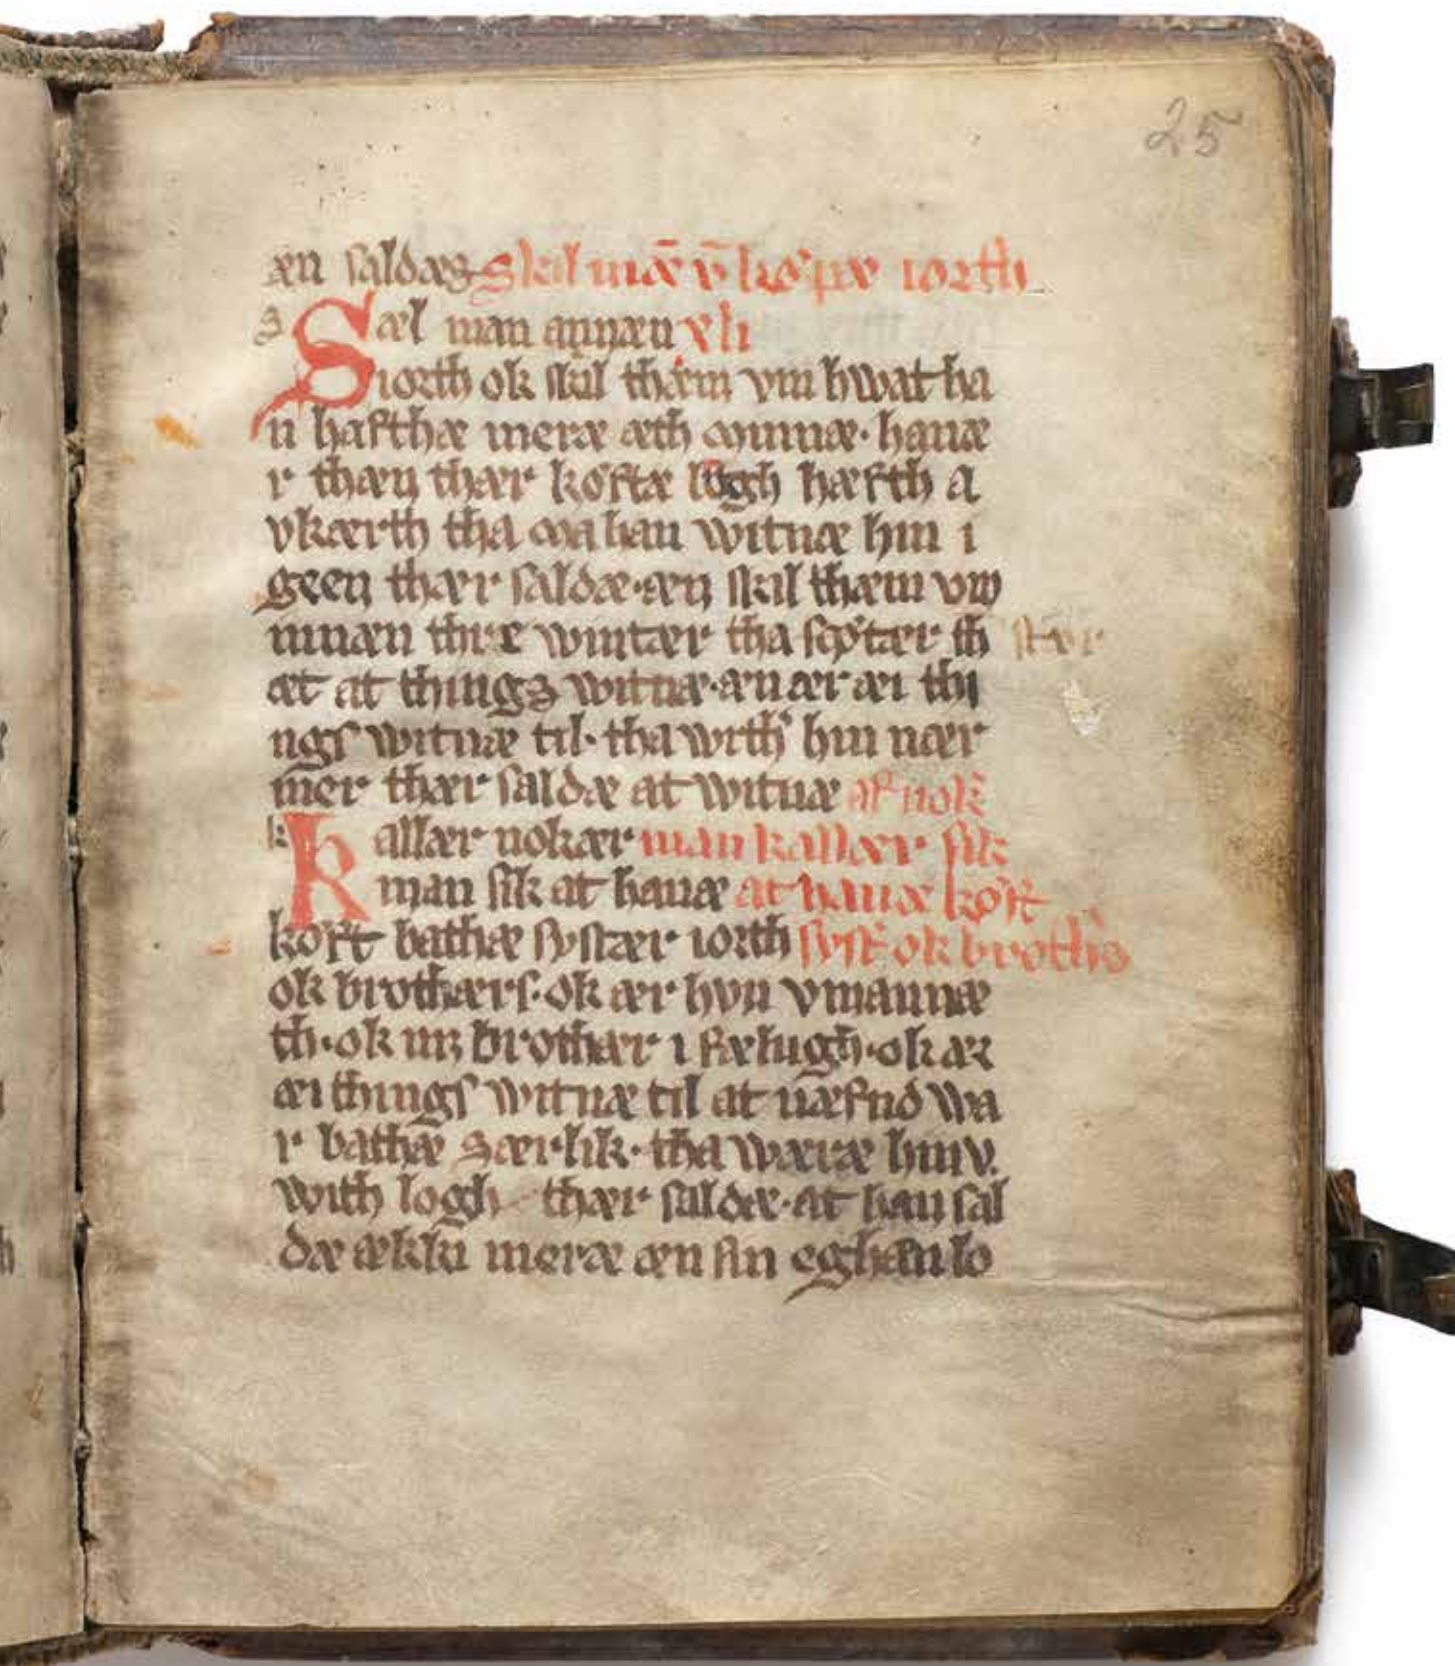 25
æn saldæs Skil mæ̅ v̅ køpæ iorth
s Sæl man annæn xli
iorth ok skil thæm vm hwat ha
n hafthæ meræ æth minnæ· hauæ
r thæn thær køftæ logh hæfth a
vkærth tha ma han witnæ hin i
geen thær saldæ·æn skil thæm vm
innæn thre wintær tha scøtær th støþ
æt at things witnæ·æn ær æi thi
ngs witnæ til· tha with hin nær
mer thær saldæ at witnæ af nok
k Kallær nokær man kallær sik
man sik at hauæ at hauæ køft
køft bathæ systær iorth syst ok broth
ok brothærs· ok ær hvn vmannæ
th·ok in brothær i fælugh·ok ær
æi things witnæ til at næfnd wa
r bathæ særlik· tha wæræ hin v.
with logh thær saldæ·at han sal
dæ ækki meræ æn sin eghæn lo